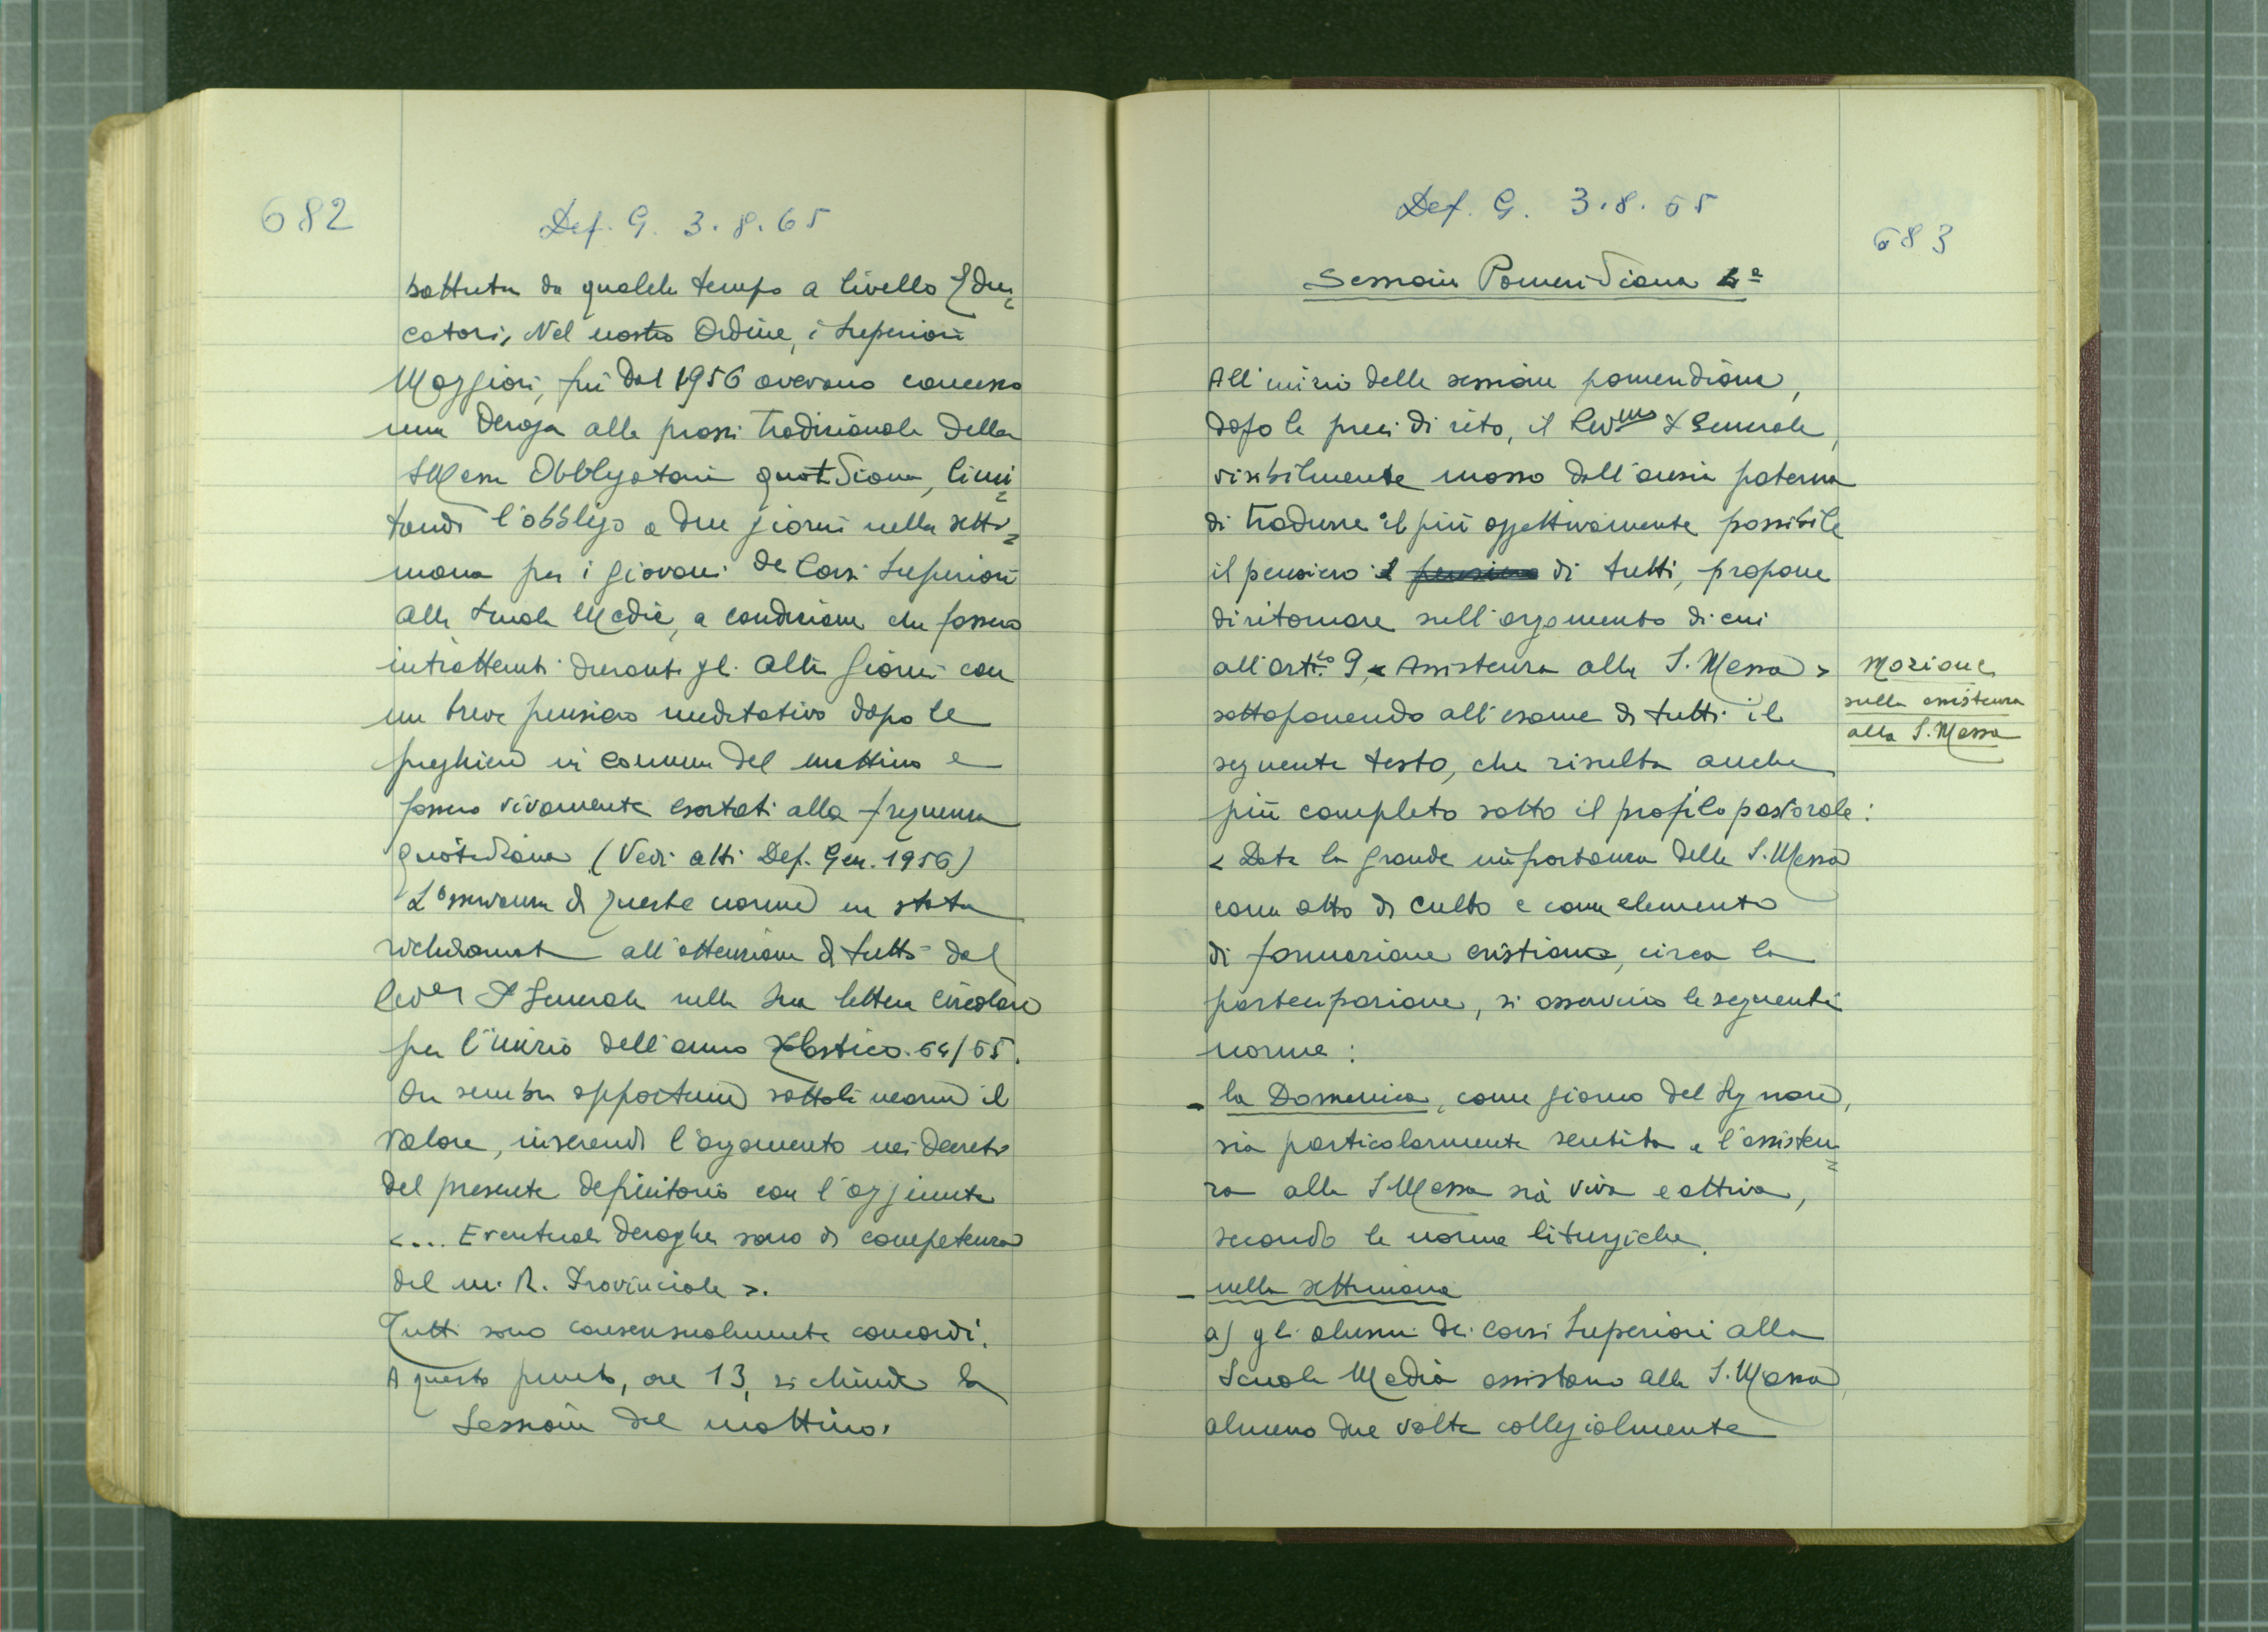 682
Def. G. 3.8.65
battuta da qualche tempo a livello Edu=
catori, Nel nostro Ordine, i Superiori
Maggiori, fin dal 1956 avevano concesso
una deroga alla prassi tradizionale della
S Messa Obbligatoria quotidiana, limi=
tando l'obbligo a due giorni nella setti=
mana per i giovani dei Corsi Superiori
alla Scuola Media, a condizione che fossero
intrattenuti durante gli altri giorni con
un breve pensiero meditativo dopo le
preghiere in comune del mattino e
fossero vivamente esortati alla frequenza
quotidiana (Vedi atti Def. Gen. 1956)
L'osservanza di queste norme era stata
richiamata all'attenzione di tutti dal
P Generale nella sua lettera circolare
per l'inizio dell'anno scolastico 64/65.
Ora sembra opportuno sottolinearne il
valore, inserendo l'argomento nei decreti
del presente definitorio con l'aggiunta
<... Eventuali deroghe sono di competenza
del M. R. Provinciale >.
Tutti sono consensualmente concordi.
A questo punto, ore 13, si chiude la
Sessione del mattino.
Def. G. 3.8.65
683
Sessione Pomeridiana
All'inizio della sessione pomeridiana,
dopo le preci di rito, il Rev.mo P Generale,
visibilmente mosso dall'ansia paterna
di tradurre il più oggettivamente possibile
il pensiero il pensiero di tutti, propone
di ritornare sull'argomento di cui
all'art.lo 9 < Assistenza alla S. Messa >
Mozione
sulla assistenza
alla S. Messa
sottoponendo all'esame di tutti il
seguente testo, che risulta anche
più completo sotto il profilo pastorale:
< Data la grande importanza della S. Messa
come atto di culto e come elemento
di formazione cristiana, circa la
partecipazione, si osservino le seguenti
norme:
- la Domenica, come giorno del Signore,
sia particolarmente sentita e l'assisten=
za alla S Messa sia viva e attiva,
secondo le norme liturgiche.
- nella settimana
a) gli alunni dei corsi Superiori alla
Scuola Media assistano alla S. Messa
almeno due volte collegialmente